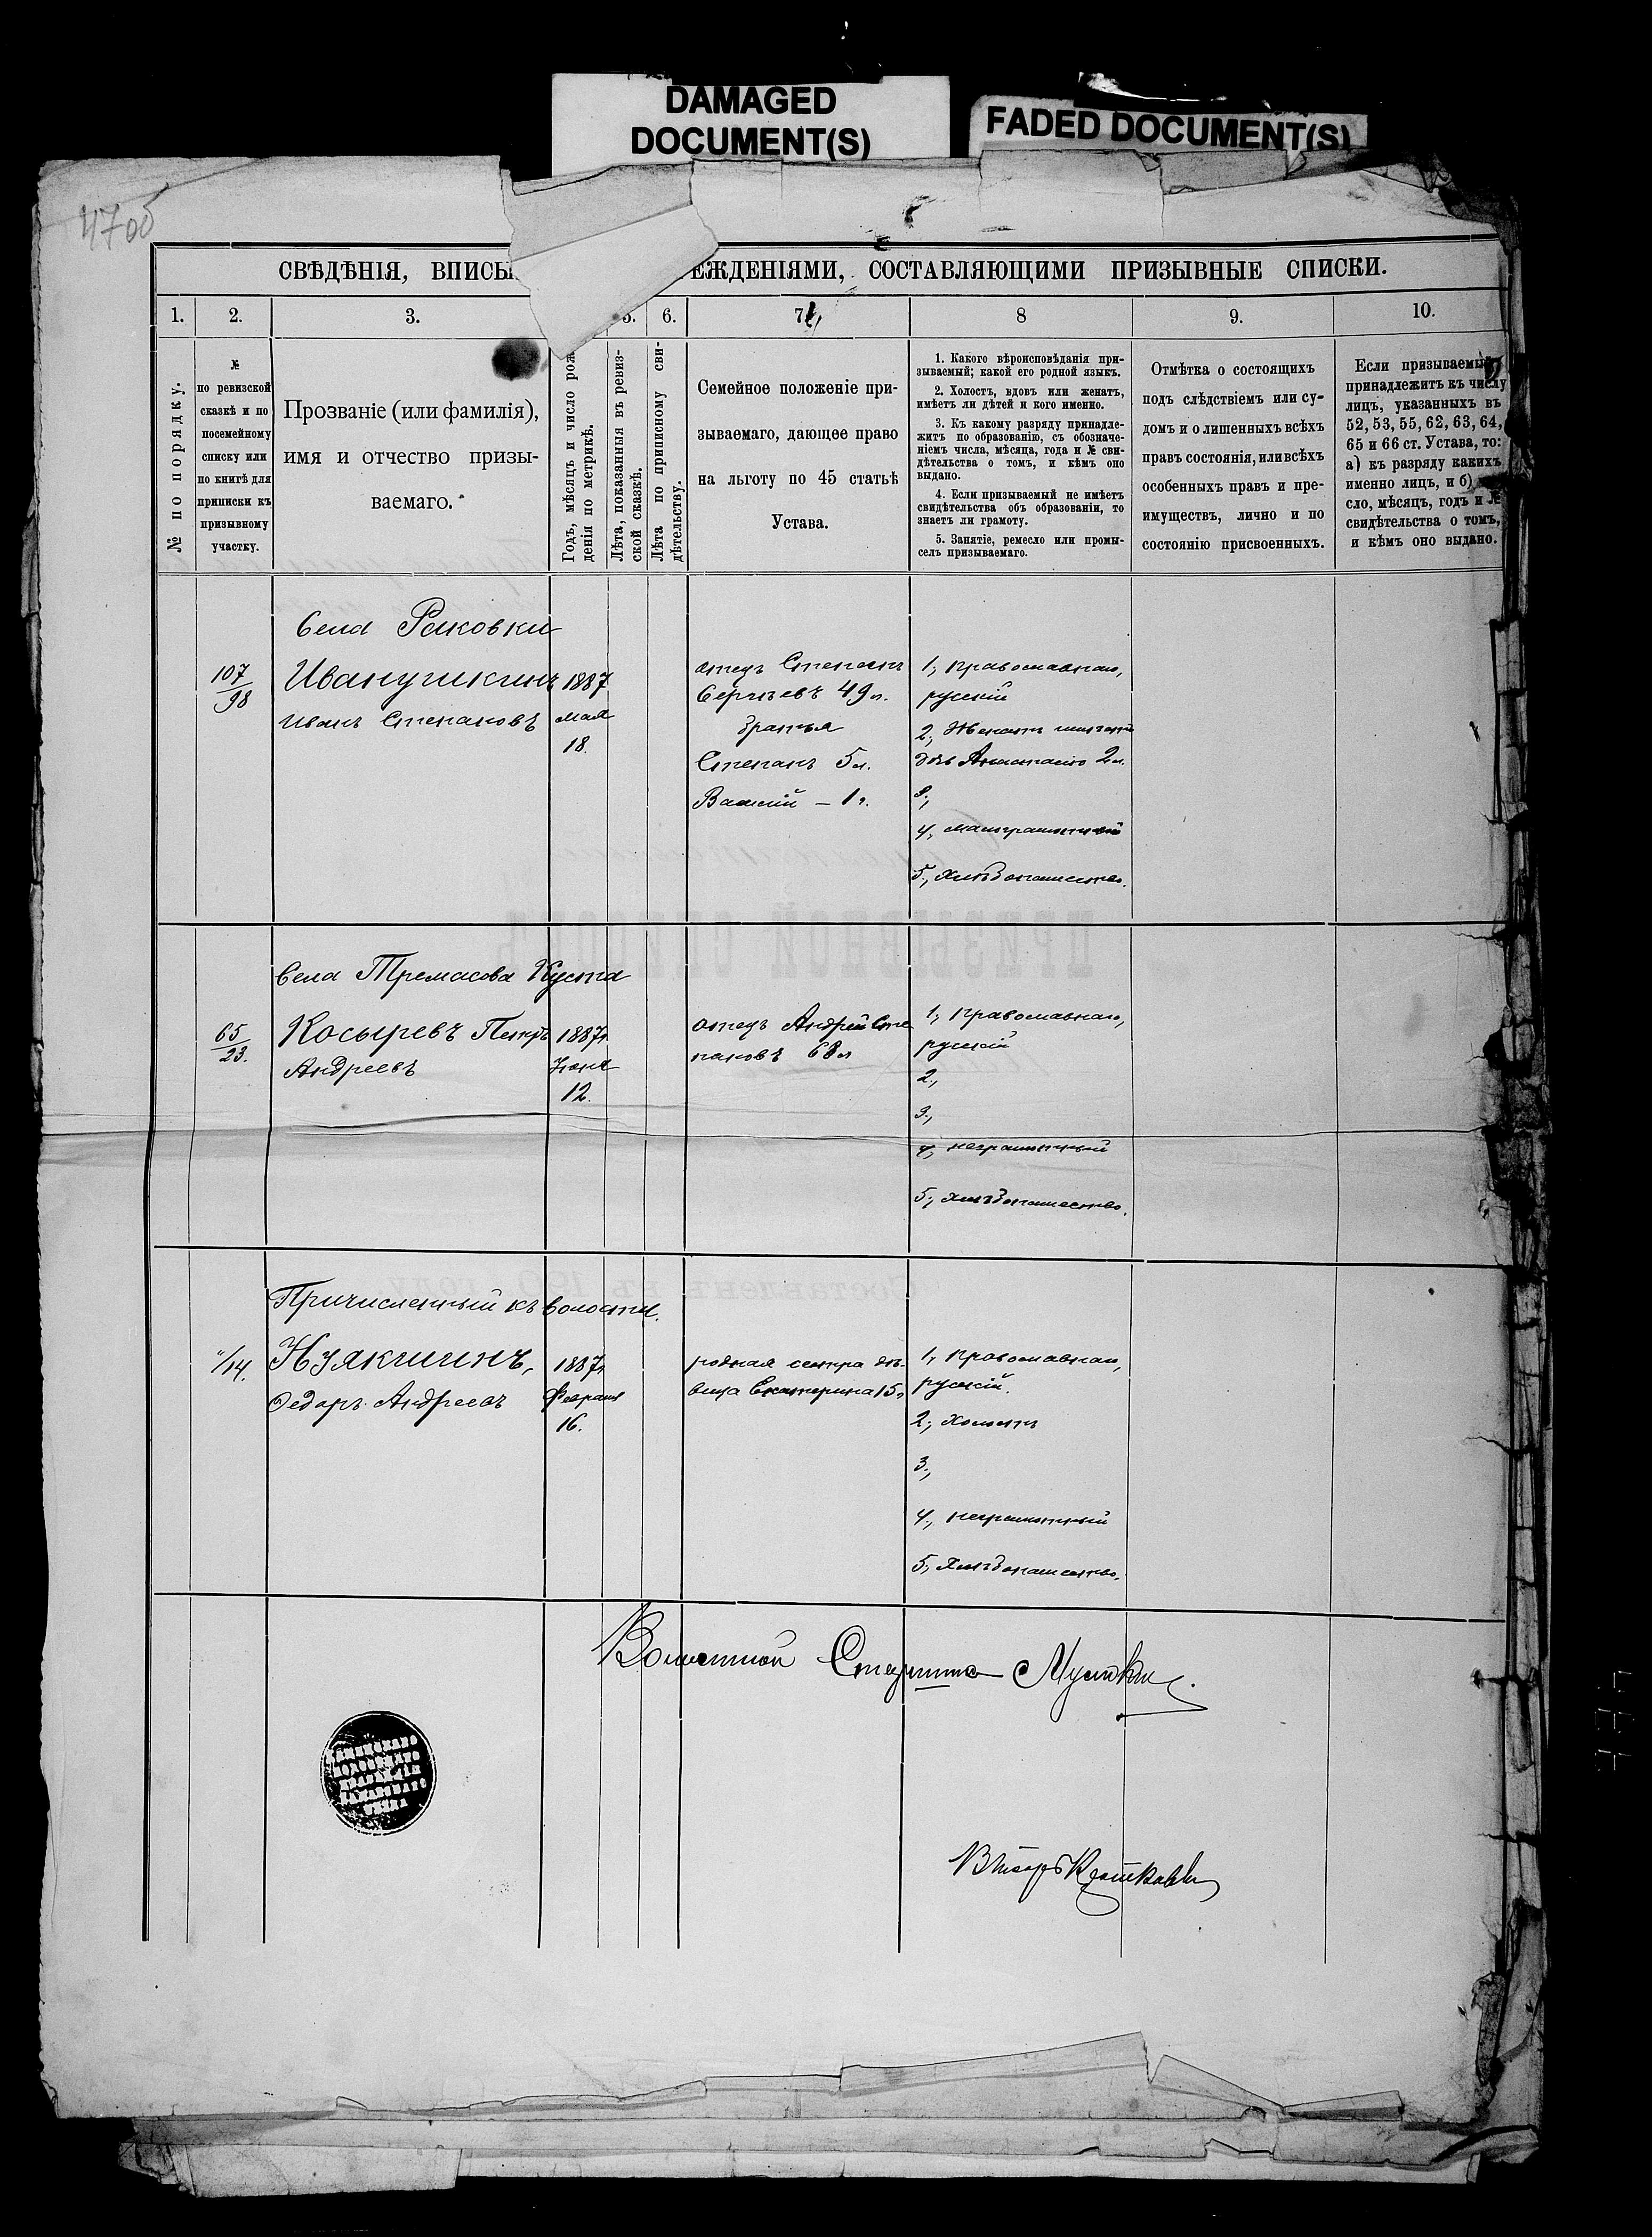 DAMAGED
DOCUMENT(S)
FADED DOCUMENT(S)
47об
СВѢДѢНІЯ, ВПИСЫ ЕЖДЕНІЯМИ, СОСТАВЛЯЮЩИМИ ПРИЗЫВНЫЕ СПИСКИ.
1. 2. 3. 5. 6. 7 8 9. 10.
№ по порядку.
№
по ревизской
сказкѣ и по
посемейному
списку или
по книгѣ для
приписки къ
призывному
участку.
Прозваніе (или фамилія),
имя и отчество призы-
ваемаго.
Годъ, мѣсяцъ и число рож
денія по метрикѣ.
Лѣта, показанныя въ ревиз-
ской сказкѣ.
Лѣта по приписному сви-
дѣтельству.
Семейное положеніе при-
зываемаго, дающее право
на льготу по 45 статьѣ
Устава.
1. Какого вѣроисповѣданія при-
зываемый; какой его родной языкъ.
2. Холостъ, вдовъ или женатъ,
имѣетъ ли дѣтей и кого именно.
3. Къ какому разряду принадле-
житъ по образованію, съ обозначе-
ніемъ числа, мѣсяца, года и № сви-
дѣтельства о томъ, и кѣмъ оно
выдано.
4. Если призываемый не имѣетъ
свидѣтельства объ образованіи, то
знаетъ ли грамоту.
5. Занятіе, ремесло или промы-
селъ призываемаго.
Отмѣтка о состоящихъ
подъ слѣдствіемъ или су-
домъ и о лишенныхъ всѣхъ
правъ состоянія, или всѣхъ
особенныхъ правъ и пре-
имуществъ, лично и по
состоянію присвоенныхъ.
Если призываемый
принадлежитъ къ числу
лицъ, указанныхъ въ
52, 53, 55, 62, 63, 64,
65 и 66 ст. Устава, то:
а) къ разряду какихъ
именно лицъ, и б)
сло, мѣсяцъ, годъ и №
свидѣтельства о томъ,
и кѣмъ оно выдано.
Села Раковки
107/98
Иванушкинъ
Иванъ Степановъ
1887
мая
18.
отецъ Степанъ
Сергѣевъ 49 л.
братья
Степанъ 5 л.
Василій – 1 г.
1, православнаго,
русскій
2, Женатъ имѣетъ
дочь Анастасію 2 л.
3,
4, малограмотный
5, хлѣбопашество.
Села Тремасова Куста
65/23.
Косыревъ Петръ
Андреевъ
1887 г.
Іюня
12.
отецъ Андрей Сте
пановъ 68 л
1, православнаго,
русскій
2,
3,
4, неграмотный
5, хлѣбопашество.
Причисленный къ волости.
"/14.
Нуякшинъ,
Федоръ Андреевъ
1887 г.
Февраля
16.
родная сестра дѣ-
вица Екатерина 15 л
1, православнаго,
русскій.
2, Холостъ
3,
4, неграмотный
5, Хлѣбопашество.
Волостной Старшина
ВОЛОСТНАГО
ПРАВЛЕНІЯ
САМАРСКАГО
УѢЗДА